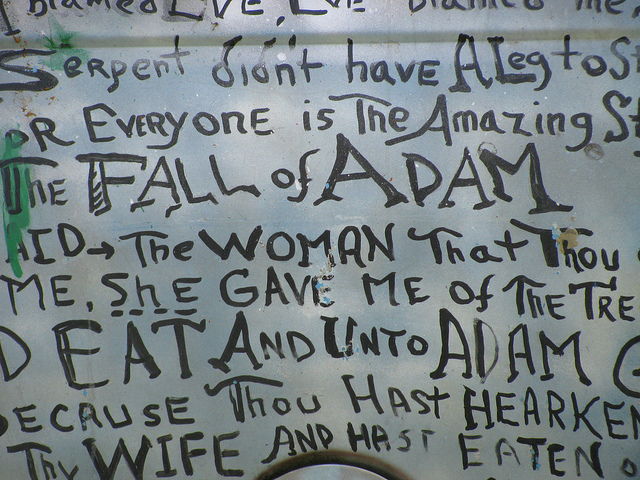 I blamed EVE, EVE blamed me
Serpent didn't have A Leg to St
OR EVERYONE is The Amazing St
The FALL of ADAM
AID → The WOMAN That Thou
ME, ShE GAVE ME of THE TRE
D EAT AND UNTO ADAM
BECAUSE Thou HAST HEARKEN
Thy WIFE AND HAST EATEN o